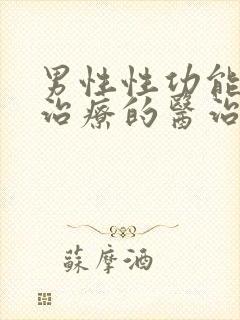 男性性功能
治療的醫治
蘇摩酒